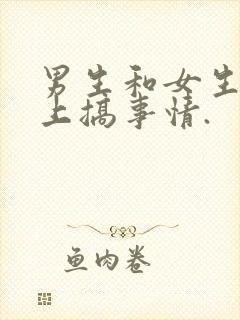 男生和女生
上搞事情.
鱼肉卷